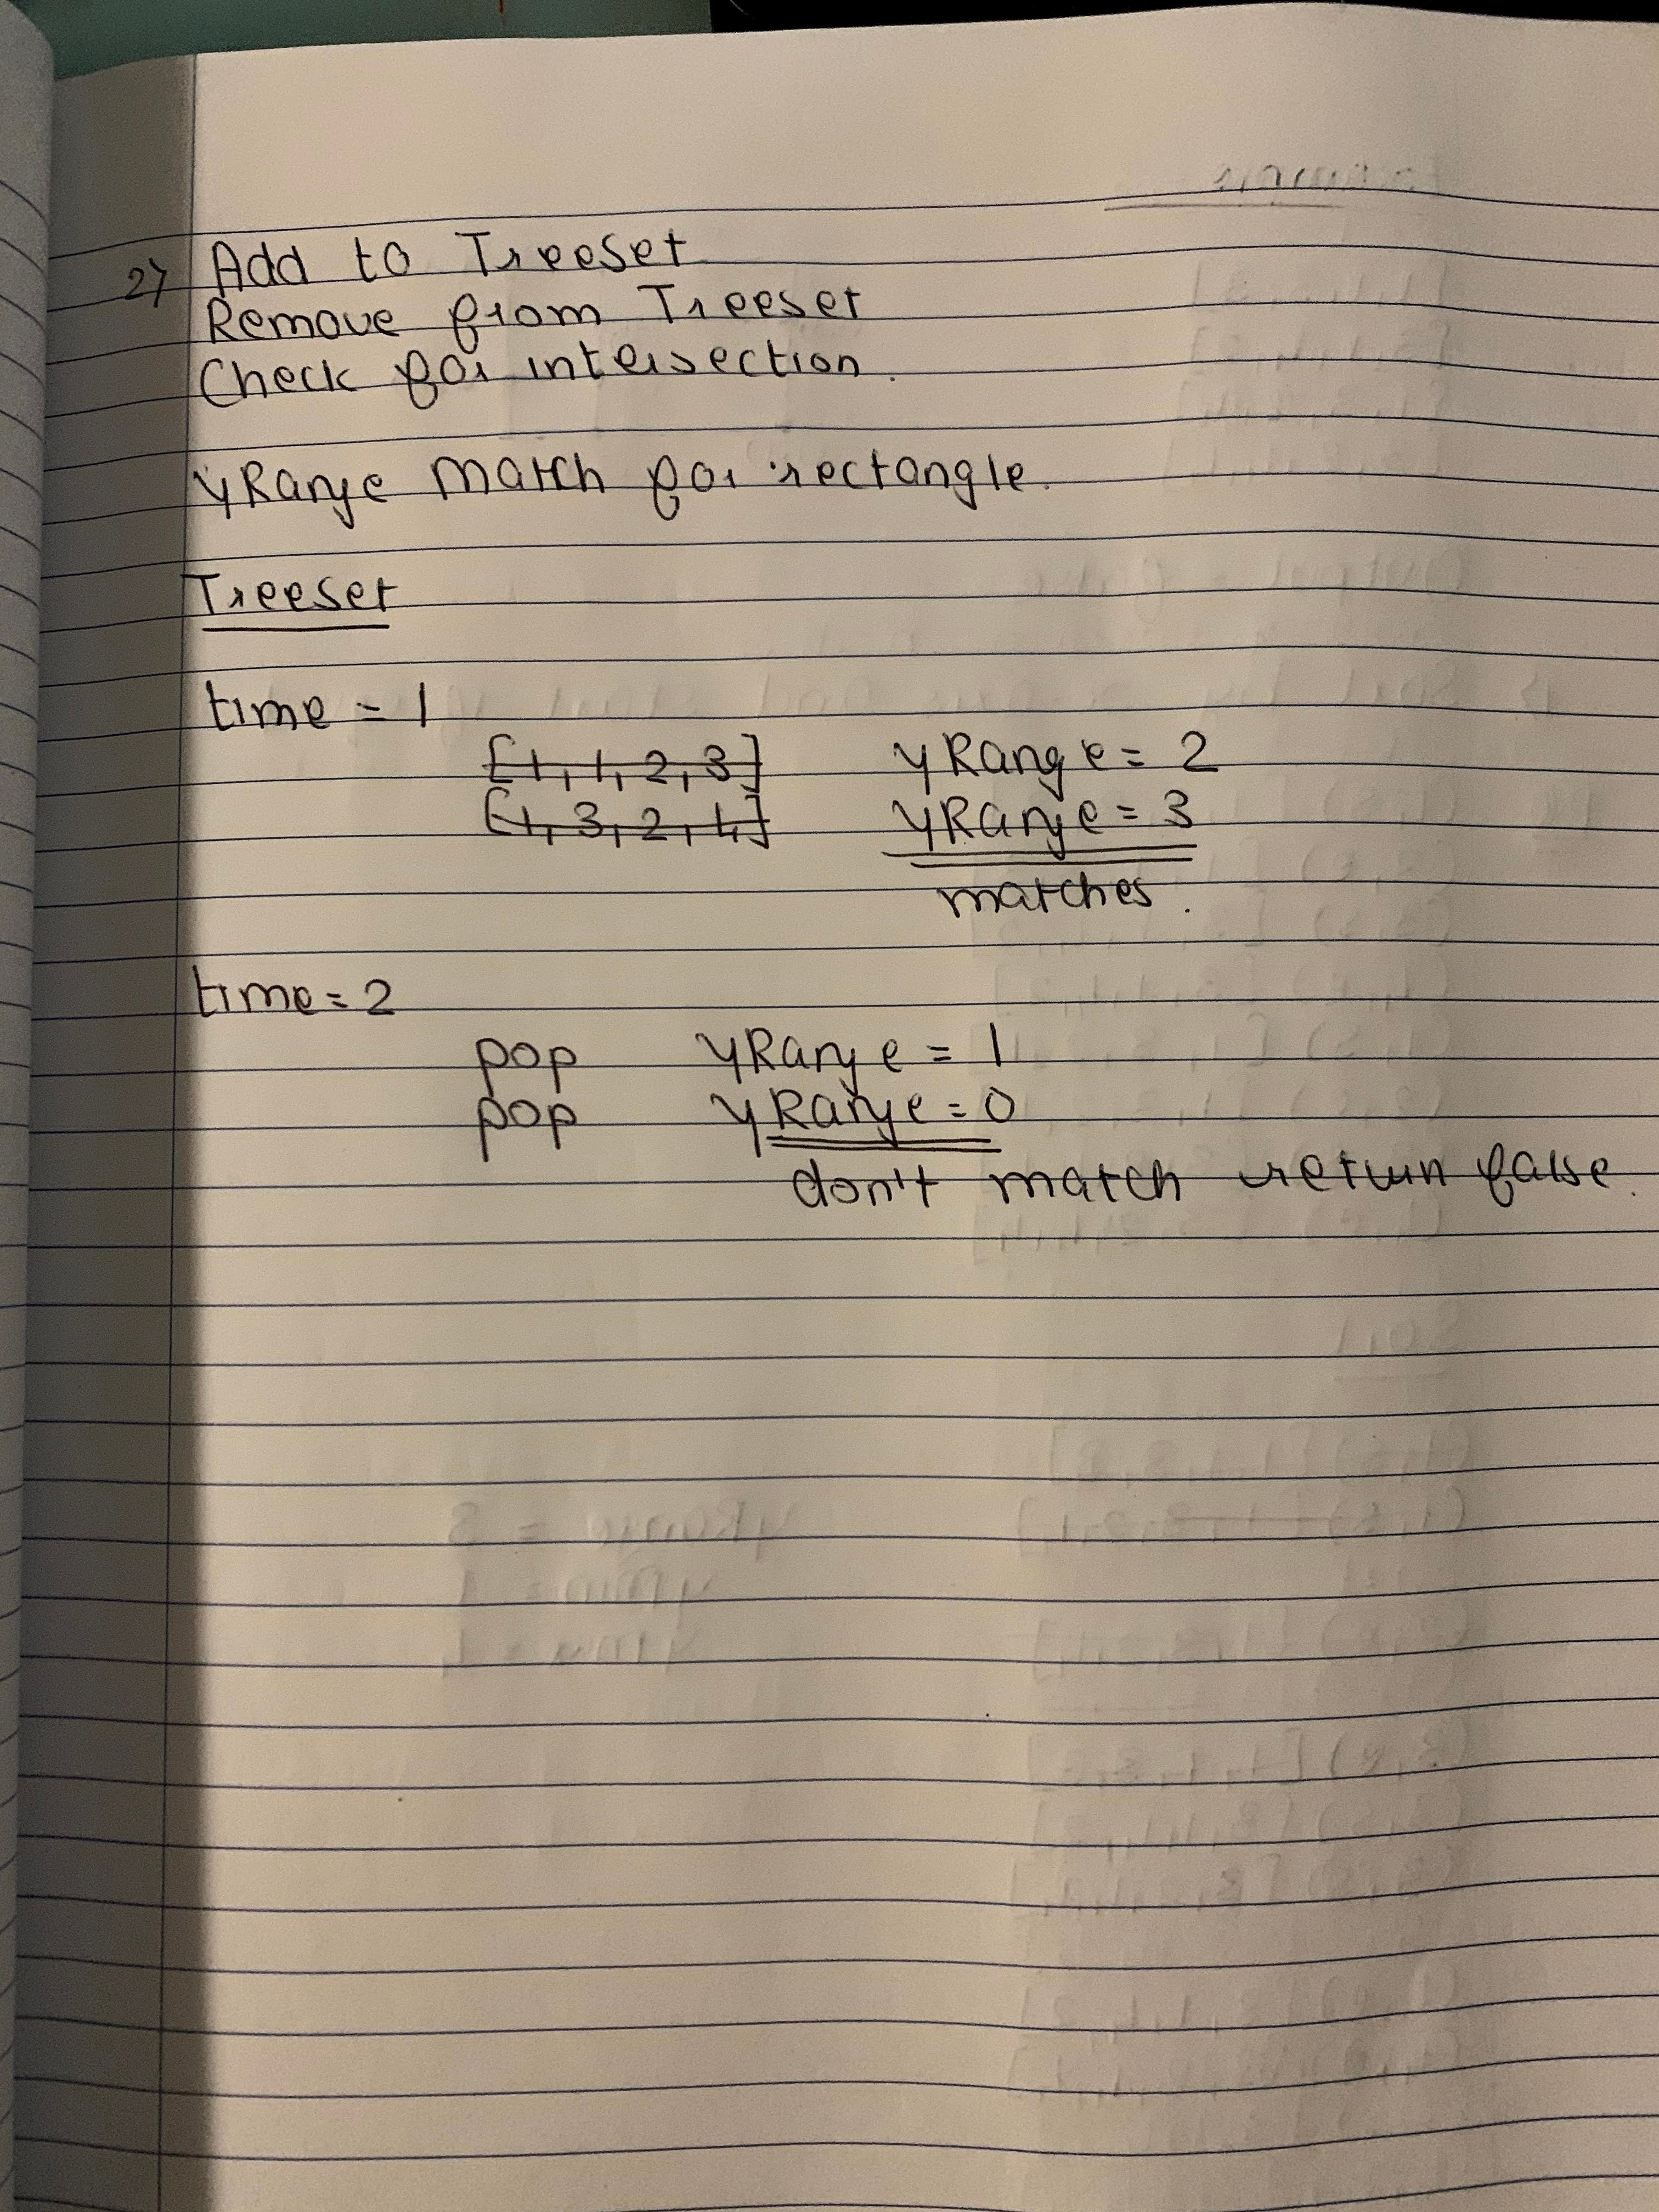 2) Add to Treeset
Remove from Treeset
Check for intersection.
yRange match for rectangle.
Treeset
time = 1
[1, 1, 2, 3] yRange = 2
[1, 3, 2, 4] yRange = 3
matches.
time = 2
pop yRange = 1
pop yRange = 0
don't match return false.